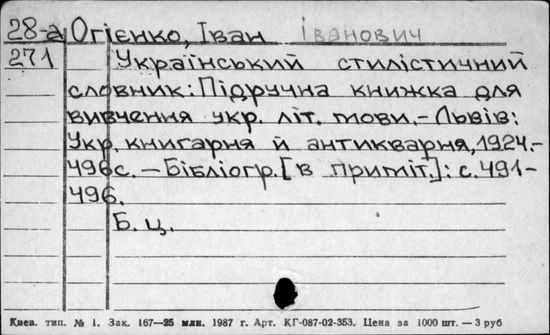 28-а Огієнко, Іван Іванович
271 Український стилістичний
словник: Підручна книжка для
вивчення укр. літ. мови.- Львів:
Укр. книгарня й антикварня, 1924.-
496с. – Бібліогр. [в приміт.]: с. 491-
496.
Б. ц.
Киев. тип. № 1. Зак. 167—25 млн. 1987 г. Арт. КГ-087-02-353. Цена за 1000 шт. — 3 руб